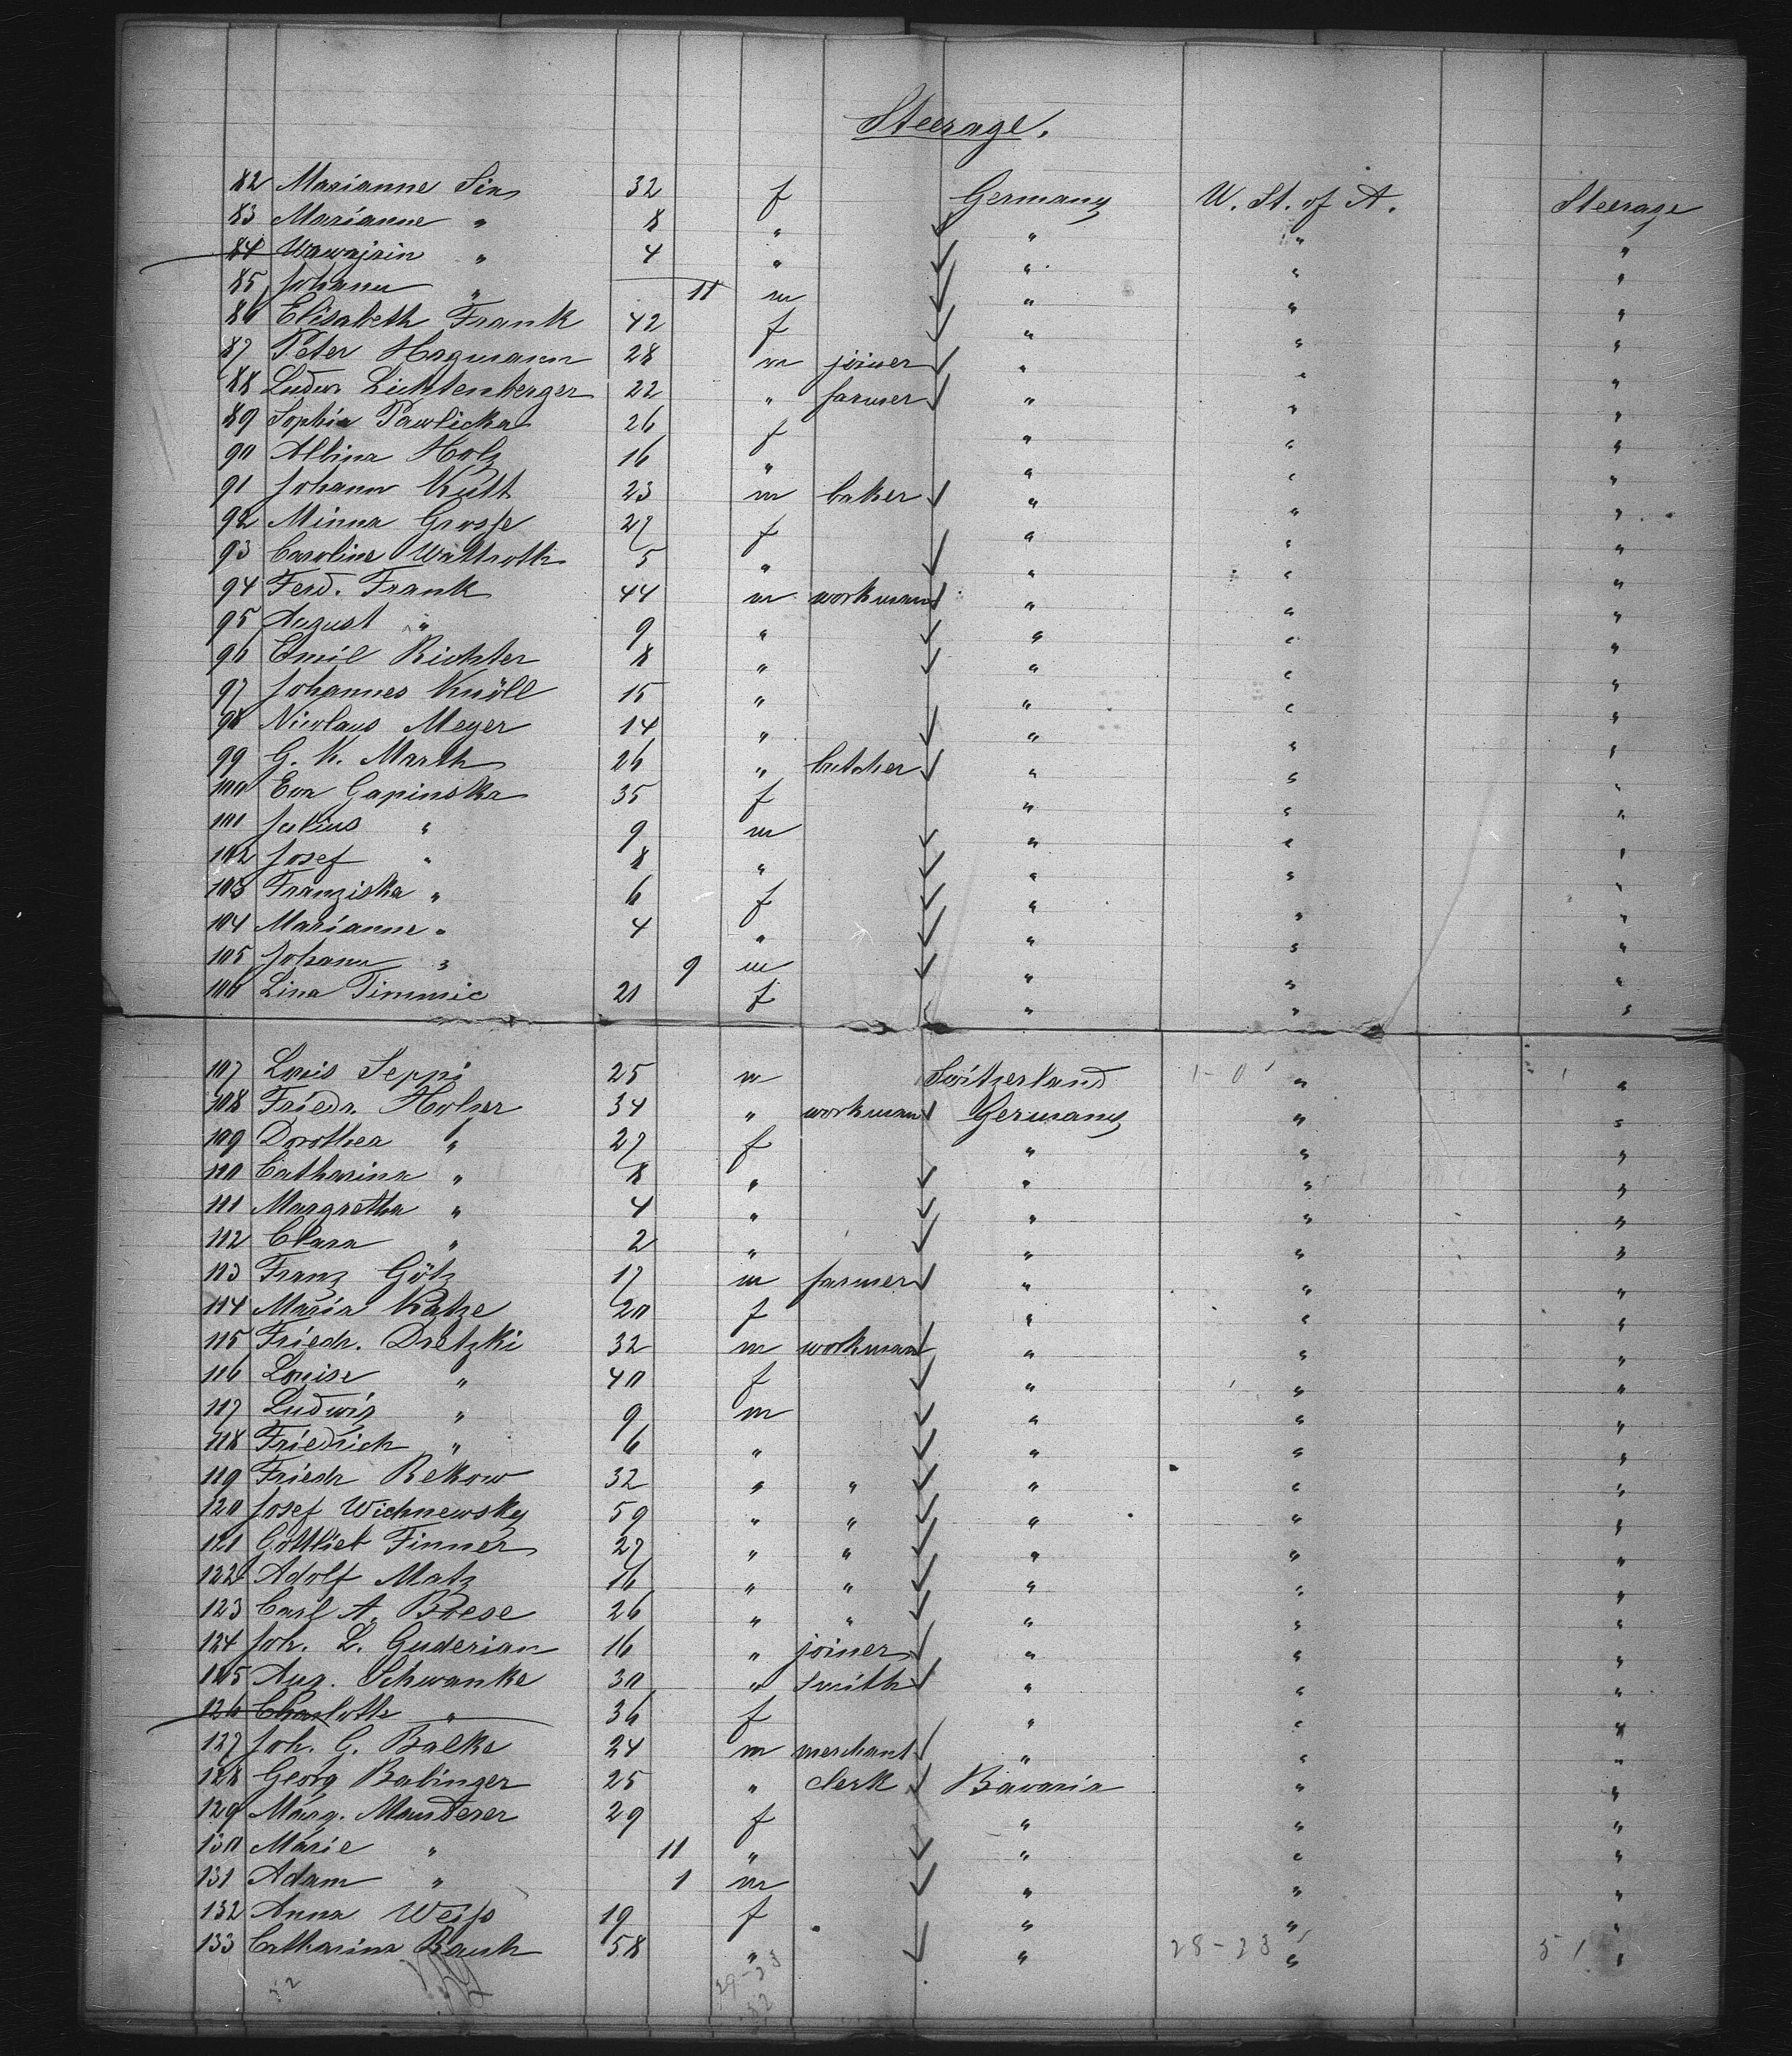 Steerage.
82 Marianne Sins 32 f Germany U. St. of A. Steerage
83 Marianne " 8 " " " "
84 Wawajrin " 4 " " " "
85 Johann " 11 m " " "
86 Elisabeth Frank 42 f " " "
87 Peter Hagmann 28 m joiner " " "
88 Ludw. Lichtenberger 22 " farmer " " "
89 Sophia Pawlicka 26 f " " "
90 Albina Holz 16 " " " "
91 Johann Kutt 23 m baker " " "
92 Minna Grosse 27 f " " "
93 Caroline Wattroth 5 " " " "
94 Ferd. Frank 44 m workman " " "
95 August " 9 " " " "
96 Emil Richter 8 " " " "
97 Johannes Knöll 15 " " " "
98 Nicolaus Meyer 14 " " " "
99 G. K. Marth 26 " butcher " " "
100 Eva Gapinska 35 f " " "
101 Julius " 9 m " " "
102 Josef " 8 " " " "
103 Franziska " 6 f " " "
104 Marianne " 4 " " " "
105 Johann " 9 m " " "
106 Lina Timmie 21 f " " "
107 Louis Seppi 25 m Switzerland " "
108 Friedr. Holzer 34 " workman Germany " "
109 Dorothea " 27 f " " "
110 Catharina " 8 " " " "
111 Margretha " 4 " " " "
112 Clara " 2 " " " "
113 Franz Götz 17 m farmer " " "
114 Maria Katze 20 f " " "
115 Friedr. Dretzki 32 m workman " " "
116 Louise " 40 f " " "
117 Ludwig " 9 m " " "
118 Friedrich " 6 " " " "
119 Friedr Rekow 32 " " " " "
120 Josef Wichnewsky 59 " " " " "
121 Gottlieb Finner 27 " " " " "
122 Adolf Matz 16 " " " " "
123 Carl A. Boese 26 " " " " "
124 Joh. L. Guderian 16 " joiner " " "
125 Aug. Schwanke 30 " smith " " "
126 Charlotte " 36 f " " "
127 Joh. G. Balke 24 m merchant " " "
128 Georg Babinger 25 " clerk Bavaria " "
129 Marg. Mausterer 29 f " " "
130 Marie " 11 " " " "
131 Adam " 1 m " " "
132 Anna Weiss 19 f " " "
133 Catharina Rauh 58 " " 28-23 " 51 "
52 29-23
52